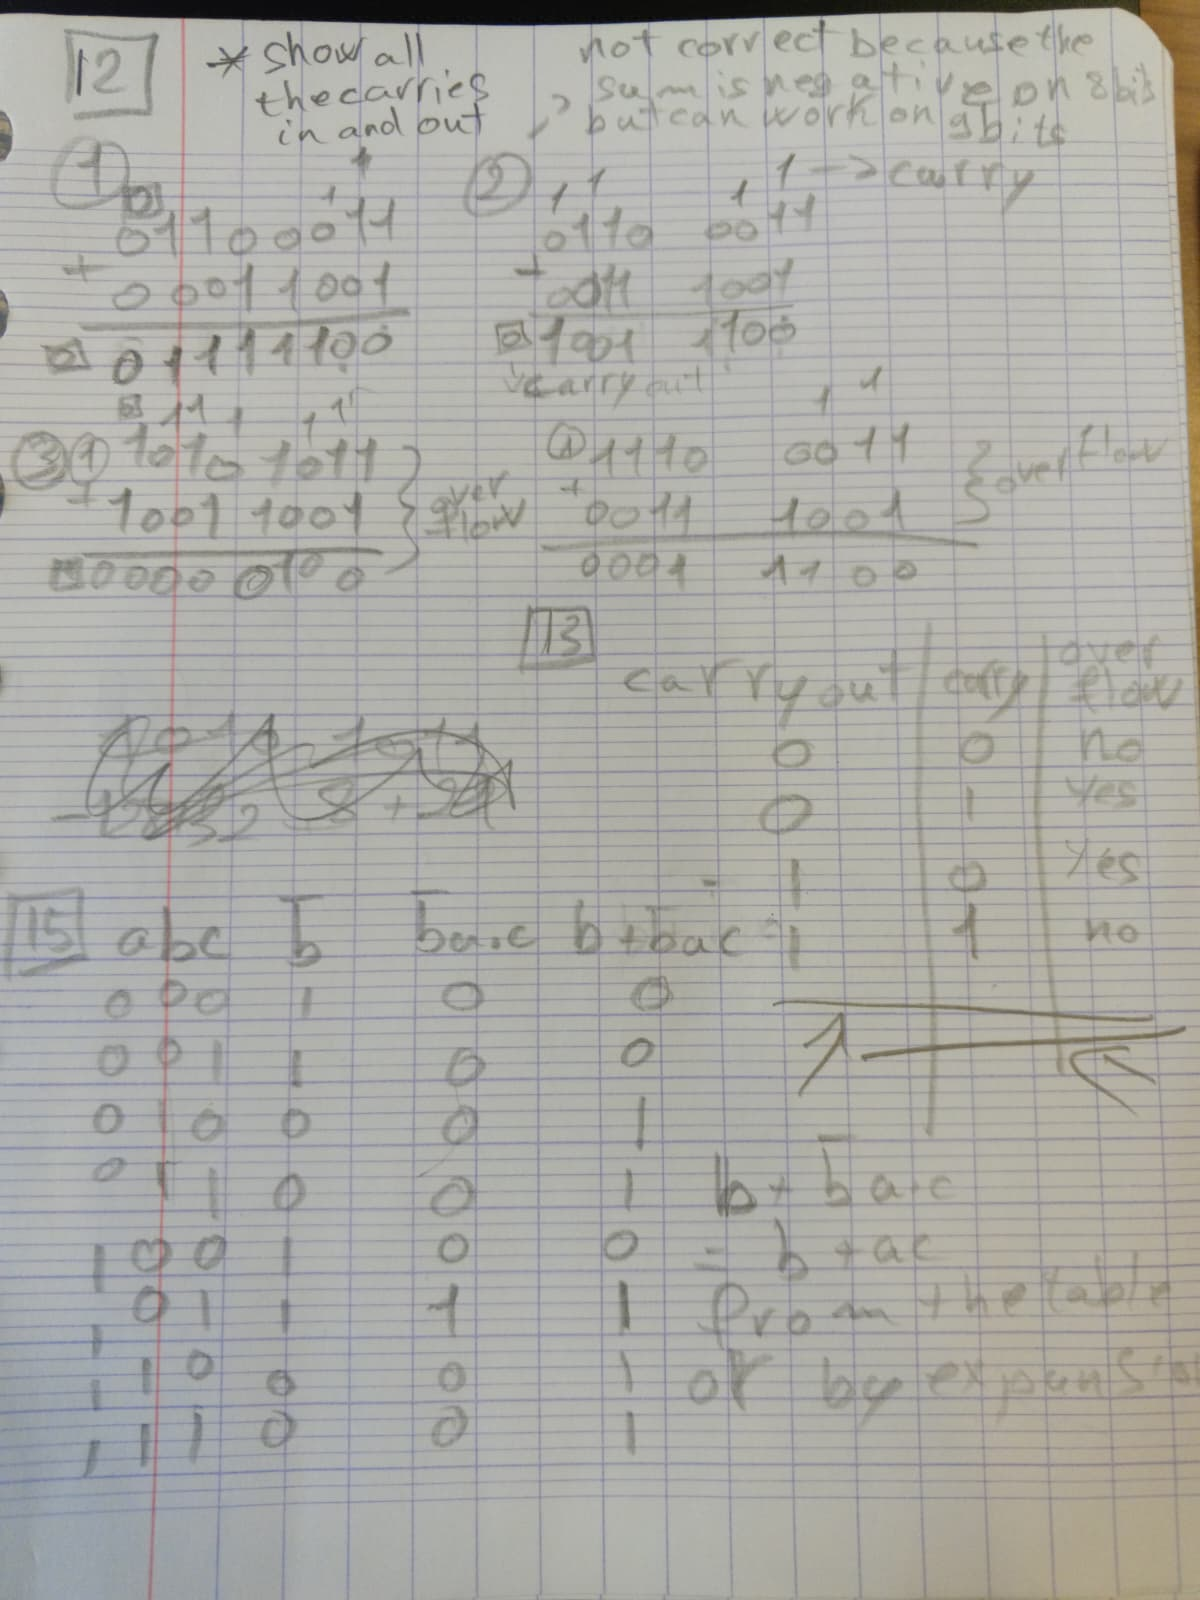 12
* show all
the carries
in and out
not correct because the
sum is negative on 8 bits
but can work on 9 bits
1
1 1
0
01100011
+
00011001
0 01111100
2
1 1 1 1 -> carry
0110 0011
+
0011 1001
0 1001 1100
carry out
3 1
0 1 1 1 1 1
1010 1011
+
1001 1001
0000 0100
over
flow
1 1
1 1110 0011
+
0011 1001
0001 1100
overflow
13
carry out carry over
flow
0 0 no
0 1 yes
1 0 yes
1 1 no
15 abc b̅ b̅a.c b+b̅ac
000 1 0 0
001 1 0 0
010 0 0 1
011 0 0 1
100 1 0 0
101 1 1 1
110 0 0 1
111 0 0 1
b + b̅ a.c
= b + ac
from the table
or by expansion